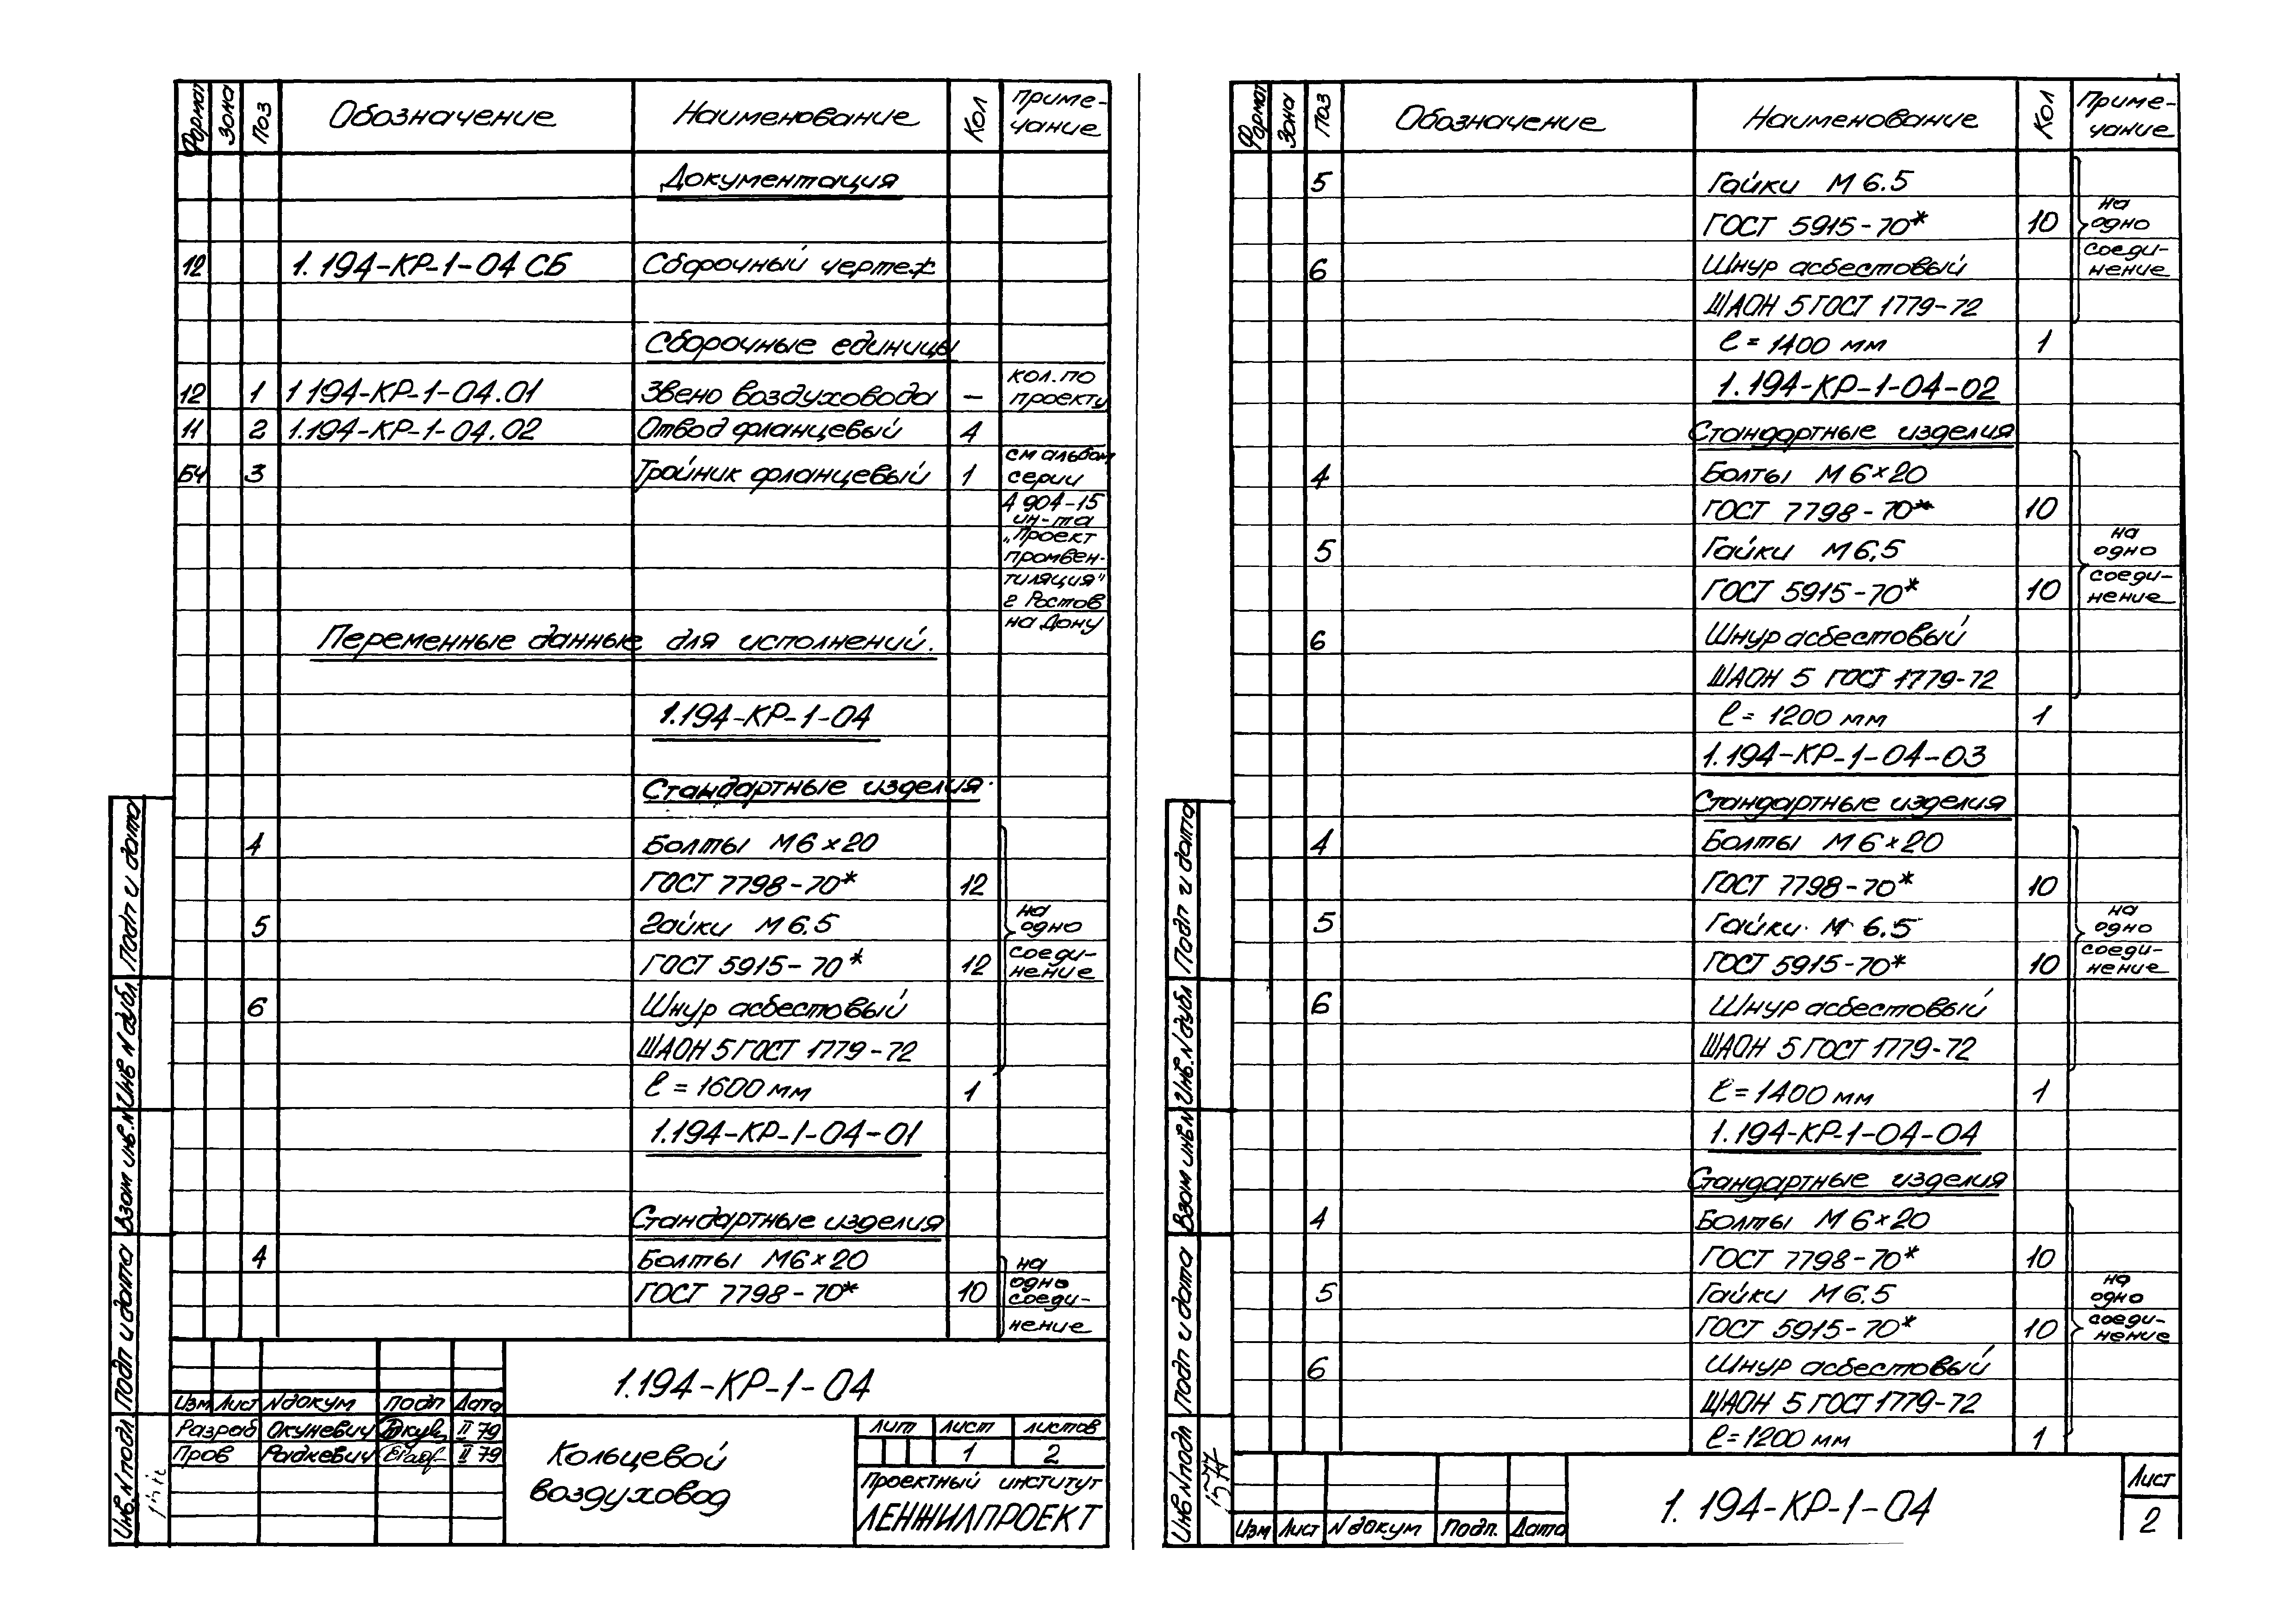 Формат Зона Поз Обозначение Наименование Кол Приме-
чание
Документация
12 1.194-КР-1-04 СБ Сборочный чертеж
Сборочные единицы
12 1 1 194-КР-1-04.01 Звено воздуховода – кол. по
проекту
11 2 1.194-КР-1-04.02 Отвод фланцевый 4
БЧ 3 Тройник фланцевый 1 см альбом
серии
4 904-15
ин-та
„Проект
промвен-
тиляция"
г Ростов
на Дону
Переменные данные для исполнений.
1.194-КР-1-04
Стандартные изделия
4 Болты М6×20
ГОСТ 7798-70* 12
5 гайки М6.5
ГОСТ 5915-70* 12
6 Шнур асбестовый
ШАОН 5 ГОСТ 1779-72
на
одно
соеди-
нение
ℓ = 1600 мм 1
1.194-КР-1-04-01
Стандартные изделия
4 Болты М6×20
ГОСТ 7798-70* 10
на
одно
соеди-
нение
1.194-КР-1-04
Изм Лист N докум Подп Дата
Разраб Окуневич II 79
Пров Радкевич II 79
Кольцевой
воздуховод
Лит Лист Листов
1 2
Проектный институт
ЛЕНЖИЛПРОЕКТ
Подп и дата
Инв. N дубл.
Взам инв. N
Подп и дата
Инв. N подл.
Формат Зона Поз Обозначение Наименование Кол Приме-
чание
5 Гайки М 6.5
ГОСТ 5915-70* 10
6 Шнур асбестовый
ШАОН 5 ГОСТ 1779-72
на
одно
соеди-
нение
ℓ = 1400 мм 1
1.194-КР-1-04-02
Стандартные изделия
4 Болты М6×20
ГОСТ 7798-70* 10
5 Гайки М6.5
ГОСТ 5915-70* 10
6 Шнур асбестовый
ШАОН 5 ГОСТ 1779-72
на
одно
соеди-
нение
ℓ = 1200 мм 1
1.194-КР-1-04-03
Стандартные изделия
4 Болты М6×20
ГОСТ 7798-70* 10
5 Гайки М 6.5
ГОСТ 5915-70* 10
6 Шнур асбестовый
ШАОН 5 ГОСТ 1779-72
на
одно
соеди-
нение
ℓ = 1400 мм 1
1.194-КР-1-04-04
Стандартные изделия
4 Болты М6×20
ГОСТ 7798-70* 10
5 Гайки М6.5
ГОСТ 5915-70* 10
6 Шнур асбестовый
ШАОН 5 ГОСТ 1779-72
на
одно
соеди-
нение
ℓ = 1200 мм 1
Изм Лист N докум Подп. Дата
1. 194-КР-1-04
Лист
2
Подп и дата
Инв. N дубл
Взам инв N
Подп и дата
Инв N подл